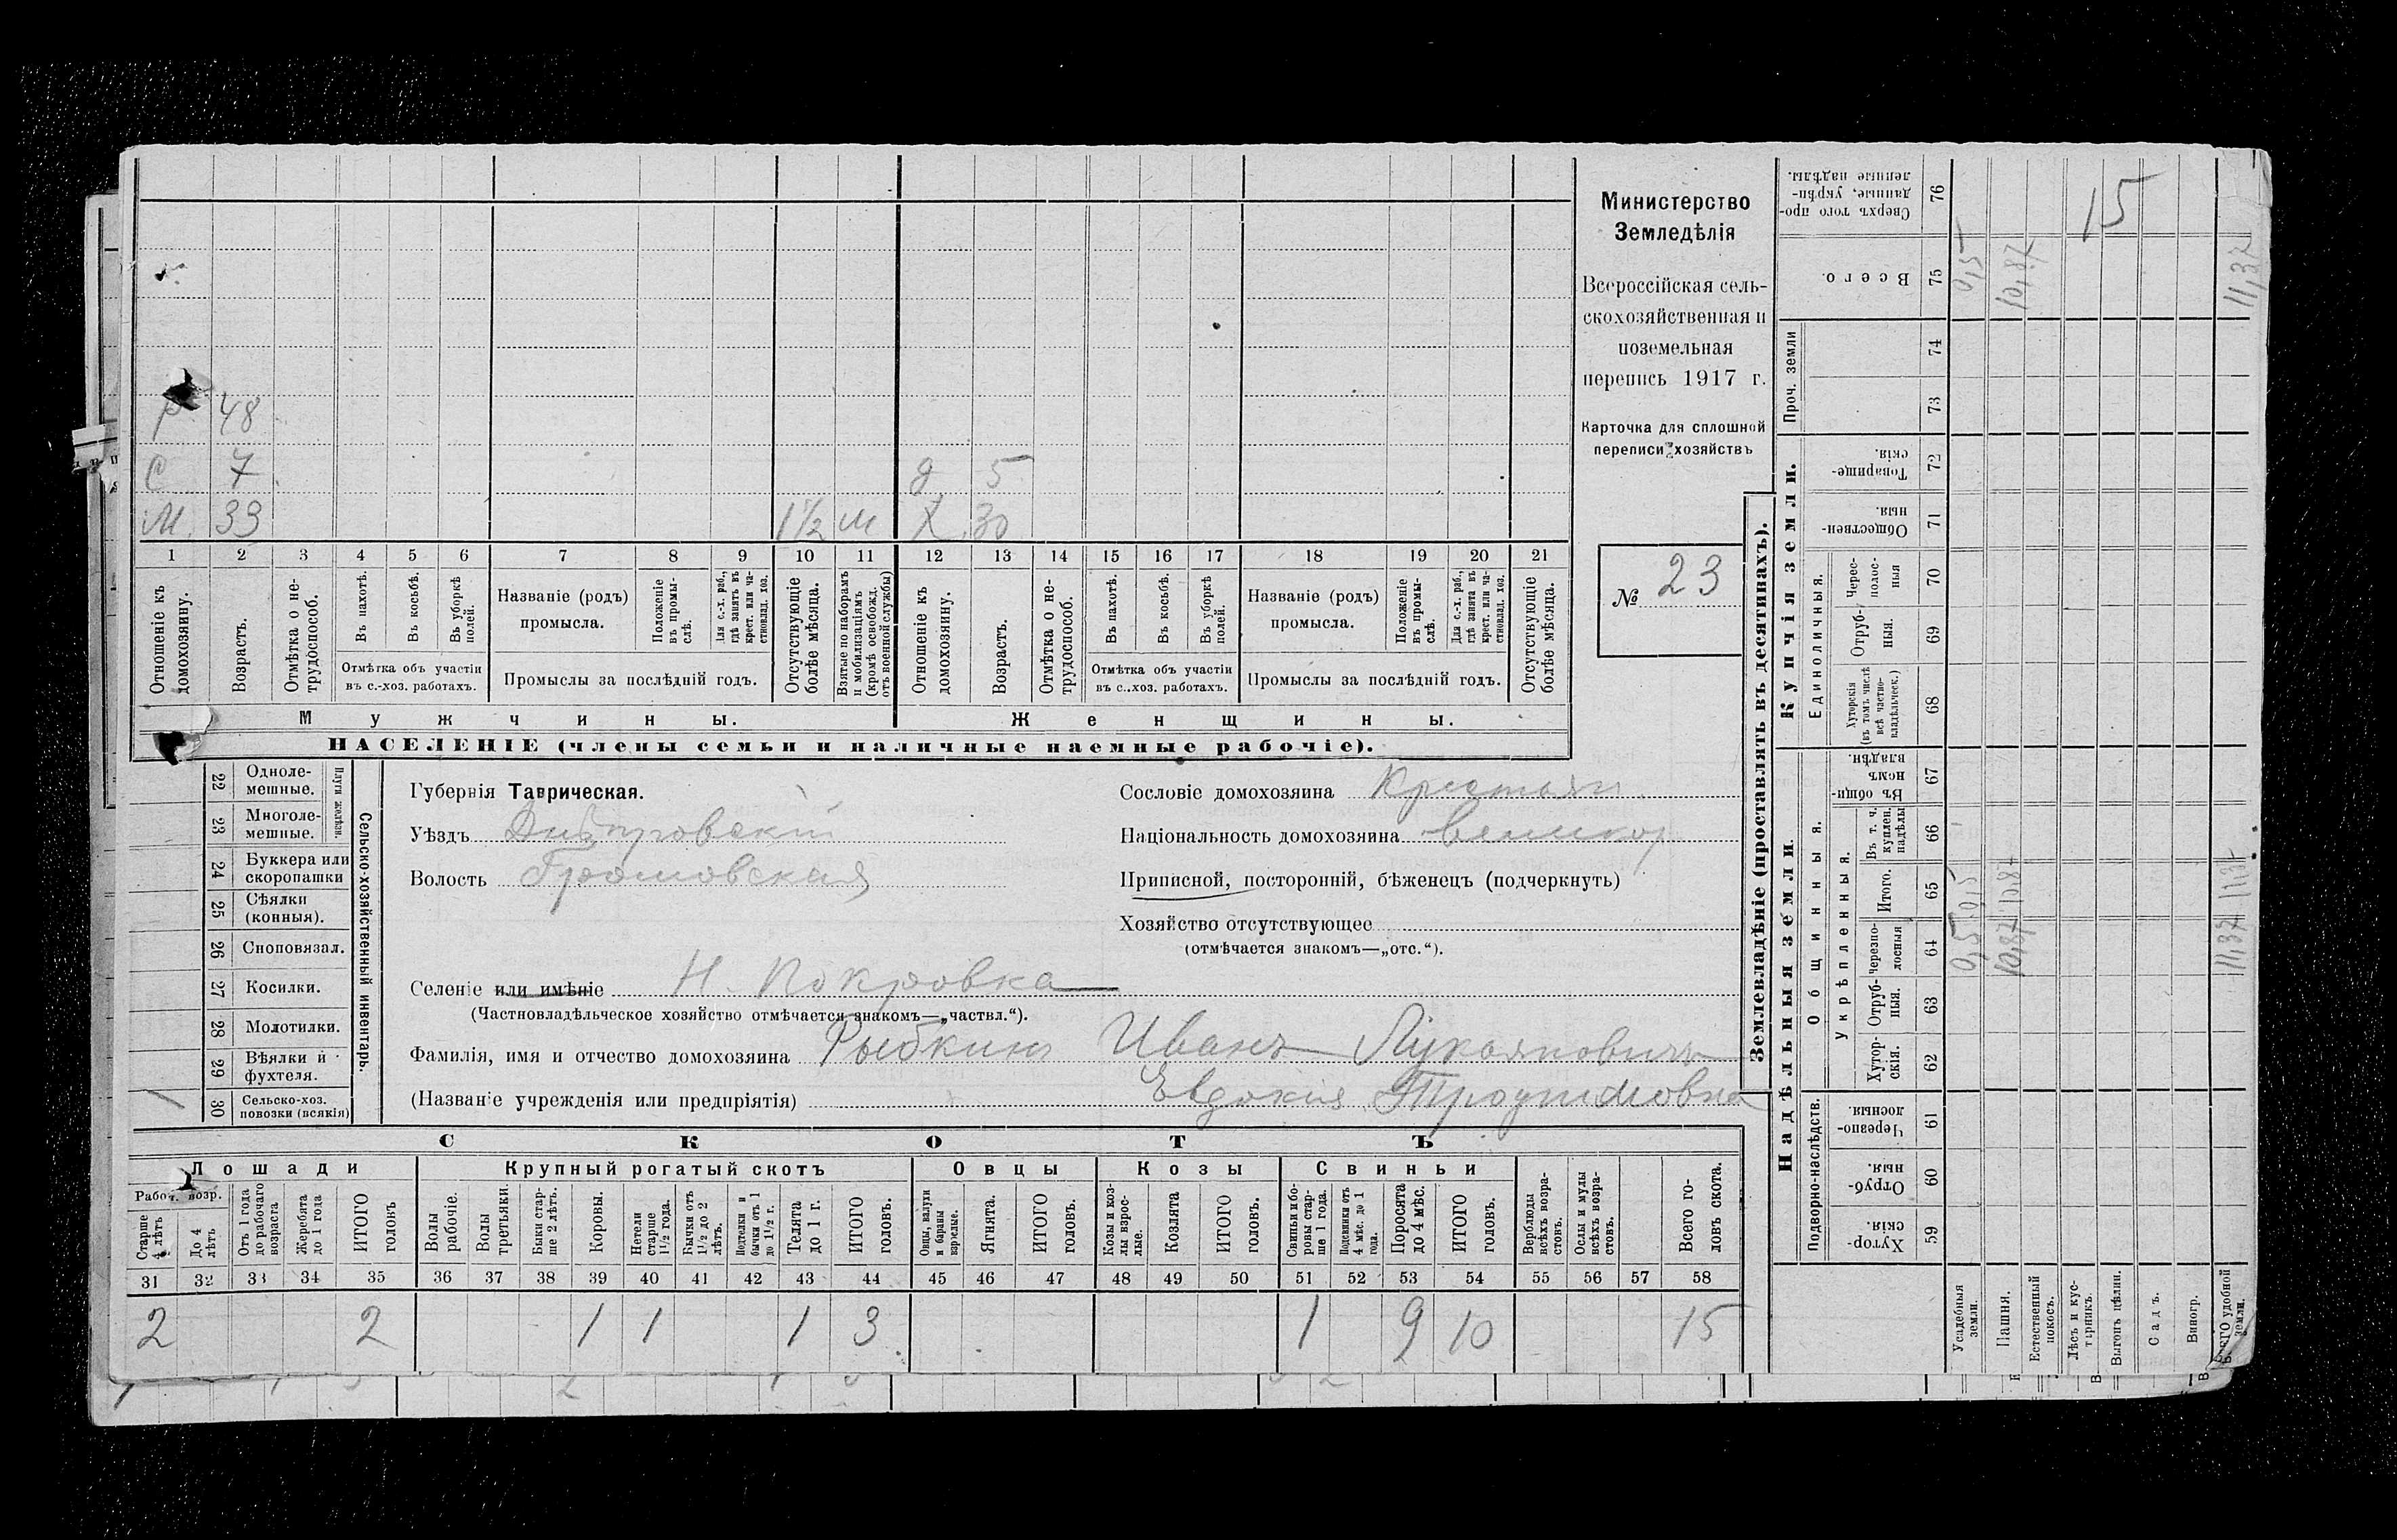 Министерство
Земледѣлія
Всероссійская сель-
скохозяйственная и
поземельная
перепись 1917 г.
Карточка для сплошной
переписи хозяйствъ
№ 23
48
С 7 д 5
М. 39 1½ м Х 30
1 2 3 4 5 6 7 8 9 10 11 12 13 14 15 16 17 18 19 20 21
Отношеніе къ домохозяину.
Возрастъ.
Отмѣтка о не-трудоспособ.
Въ пахотѣ.
Въ косьбѣ.
Въ уборкѣ полей.
Отмѣтка объ участіи
въ с.-хоз. работахъ.
Названіе (родъ)
промысла.
Положеніе въ промы-слѣ.
Для с.-х. раб., гдѣ занятъ въ крест. или ча-стновлад. хоз.
Промыслы за послѣдній годъ.
Отсутствующіе болѣе мѣсяца.
Взятые по наборамъ и мобилизаціямъ (кромѣ освобожд. отъ военной службы)
Отношеніе къ домохозяину.
Возрастъ.
Отмѣтка о не-трудоспособ.
Въ пахотѣ.
Въ косьбѣ.
Въ уборкѣ полей.
Отмѣтка объ участіи
въ с..хоз. работахъ.
Названіе (родъ)
промысла.
Положеніе въ промы-слѣ.
Для с.-х. раб., гдѣ занята въ крест. или ча-стновлад. хоз.
Промыслы за послѣдній годъ.
Отсутствующіе болѣе мѣсяца.
Мужчины. Женщины.
НАСЕЛЕНІЕ (члены семьи и наличные наемные рабочіе).
Сельско-хозяйственный инвентарь.
Плуги желѣзн.
22 Одноле-мешные.
23 Многоле-мешные.
24 Буккера или скоропашки
25 Сѣялки (конныя).
26 Сноповязал.
27 Косилки.
28 Молотилки.
29 Вѣялки и фухтеля.
30 Сельско-хоз. повозки (всякія) 1
Губернія Таврическая.
Уѣздъ Днѣпровскій
Волость Громовская
Селеніе или имѣніе Н. Покровка
(Частновладѣльческое хозяйство отмѣчается знакомъ—„частвл.“).
Фамилія, имя и отчество домохозяина Рыбкинъ Иванъ Лукьяновичъ
(Названіе учрежденія или предпріятія) Евдокия Трофимовна
Сословіе домохозяина Крестьян.
Національность домохозяина великор
Приписной, посторонній, бѣженецъ (подчеркнуть)
Хозяйство отсутствующее
(отмѣчается знакомъ—„отс.“).
СКОТЪ
Лошади Крупный рогатый скотъ Овцы Козы Свиньи
Рабоч. возр.
Старше 4 лѣтъ
До 4 лѣтъ
Отъ 1 года до рабочаго возраста
Жеребята до 1 года
ИТОГО головъ
Волы рабочіе.
Волы третьяки.
Быки стар-ше 2 лѣтъ.
Коровы.
Нетели старше 1½ года.
Бычки отъ 1½ до 2 лѣтъ.
Подтелки и бычки отъ 1 до 1½ г.
Телята до 1 г.
ИТОГО головъ.
Овцы, валухи и бараны взрослые.
Ягнята.
ИТОГО головъ.
Козы и коз-лы взрос-лые.
Козлята
ИТОГО головъ.
Свиньи и бо-ровы стар-ше 1 года.
Подсвинки отъ 4 мѣс. до 1 года.
Поросята до 4 мѣс.
ИТОГО головъ.
Верблюды всѣхъ возра-стовъ.
Ослы и мулы всѣхъ возра-стовъ.
Всего го-ловъ скота.
31 32 33 34 35 36 37 38 39 40 41 42 43 44 45 46 47 48 49 50 51 52 53 54 55 56 57 58
2 2 1 1 1 3 1 9 10 15
Землевладѣніе (проставлять въ десятинахъ).
Надѣльныя земли. Купчія земли. Проч. земли
Подворно-наслѣдств.
Общинныя.
Укрѣпленныя.
Единоличныя.
Хутор-скія. 59
Отруб-ныя. 60
Черезпо-лосныя. 61
Хутор-скія. 62
Отруб-ныя. 63
Черезпо-лосныя 64
Итого. 65
Въ т. ч. куплен. надѣлы 66
Въ общи-номъ владѣн. 67
Хуторскія (въ томъ числѣ всѣ частно-владѣльческ.) 68
Отруб-ныя. 69
Черес-полос-ныя 70
Обществен-ныя. 71
Товарище-скія. 72
73
74
Всего. 75
Сверхъ того про-данные, укрѣп-ленные надѣлы. 76
Усадебныя земли. 0,5 0,5 0,5
Пашня. 10,87 10,87 10,87
Естественный покосъ.
Лѣсъ и кус-тарникъ.
Выгонъ цѣлин.
Садъ.
Виногр.
Всего удобной земли. 11,37 11,37 11,37
15